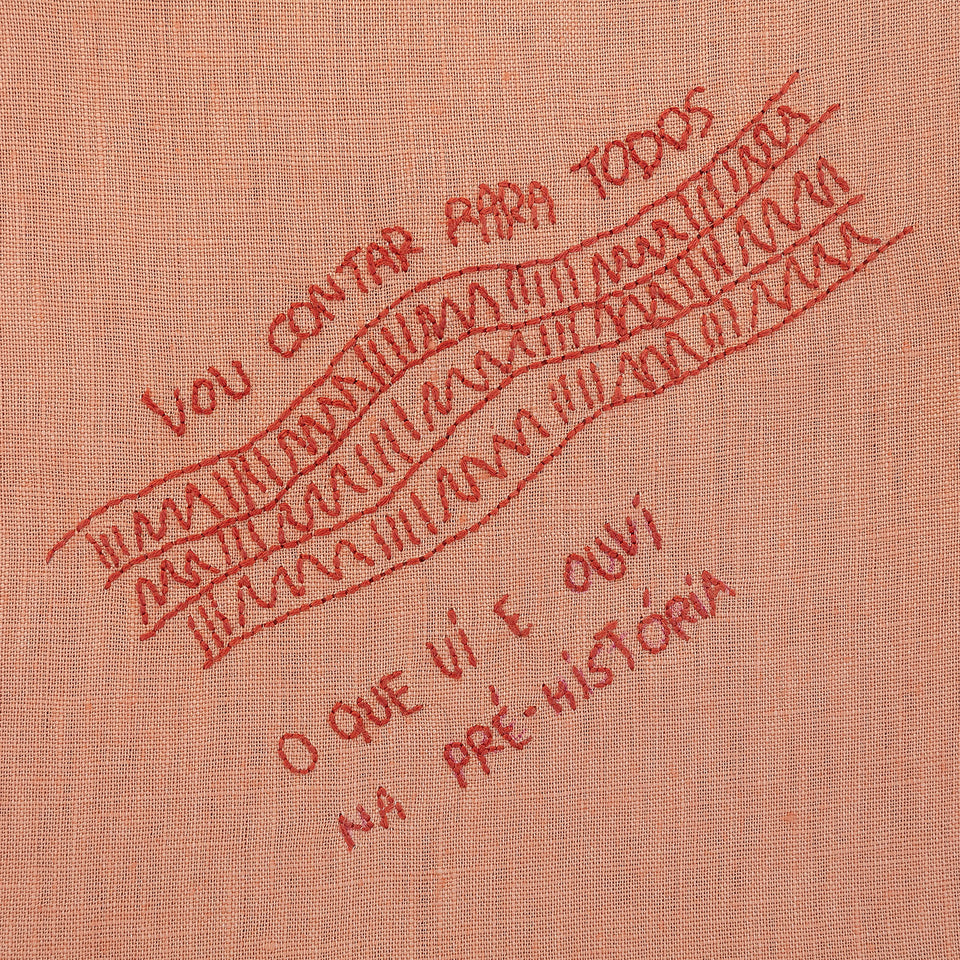 VOU CONTAR PARA TODOS
O QUE VÍ E OUVÍ
NA PRÉ-HISTÓRIA